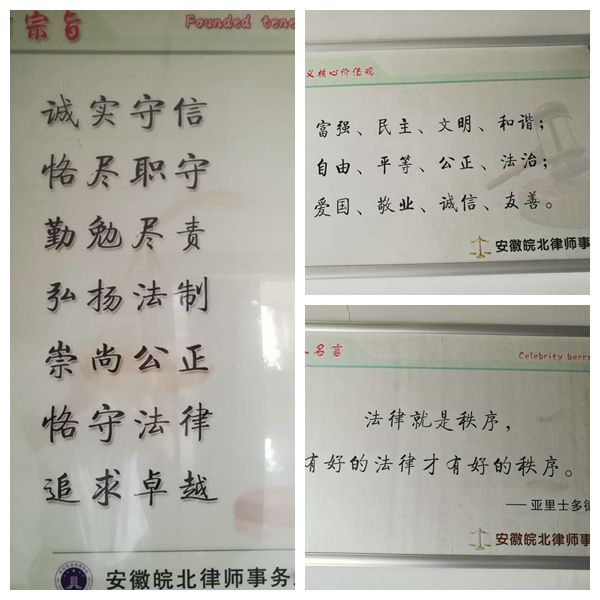 宗旨
Founded tene
诚实守信
恪尽职守
勤勉尽责
弘扬法制
崇尚公正
恪守法律
追求卓越
安徽皖北律师事务
义核心价值观
富强、民主、文明、和谐；
自由、平等、公正、法治；
爱国、敬业、诚信、友善。
安徽皖北律师事
名言
Celebrity berr
法律就是秩序，
有好的法律才有好的秩序。
——亚里士多德
安徽皖北律师事